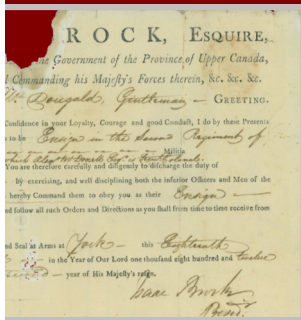 ROCK, ESQUIRE,
ne Government of the Province of Upper Canada,
Commanding his Majesty's Forces therein, &c. &c. &c.
Dougald, Gentleman — GREETING.
Confidence in your Loyalty, Courage and good Conduct, I do by these Presents
to be Ensign in the Second Regiment of
Militia
which is
You are therefore carefully and diligently to discharge the duty of
— by exercising, and well disciplining both the inferior Officers and Men of the
hereby Command them to obey you as their Ensign —
and follow all such Orders and Directions as you shall from time to time receive from
nd Seal at Arms at York — this Eighteenth
in the Year of Our Lord one thousand eight hundred and twelve
— year of His Majesty's reign.
Isaac Brock
Presd.